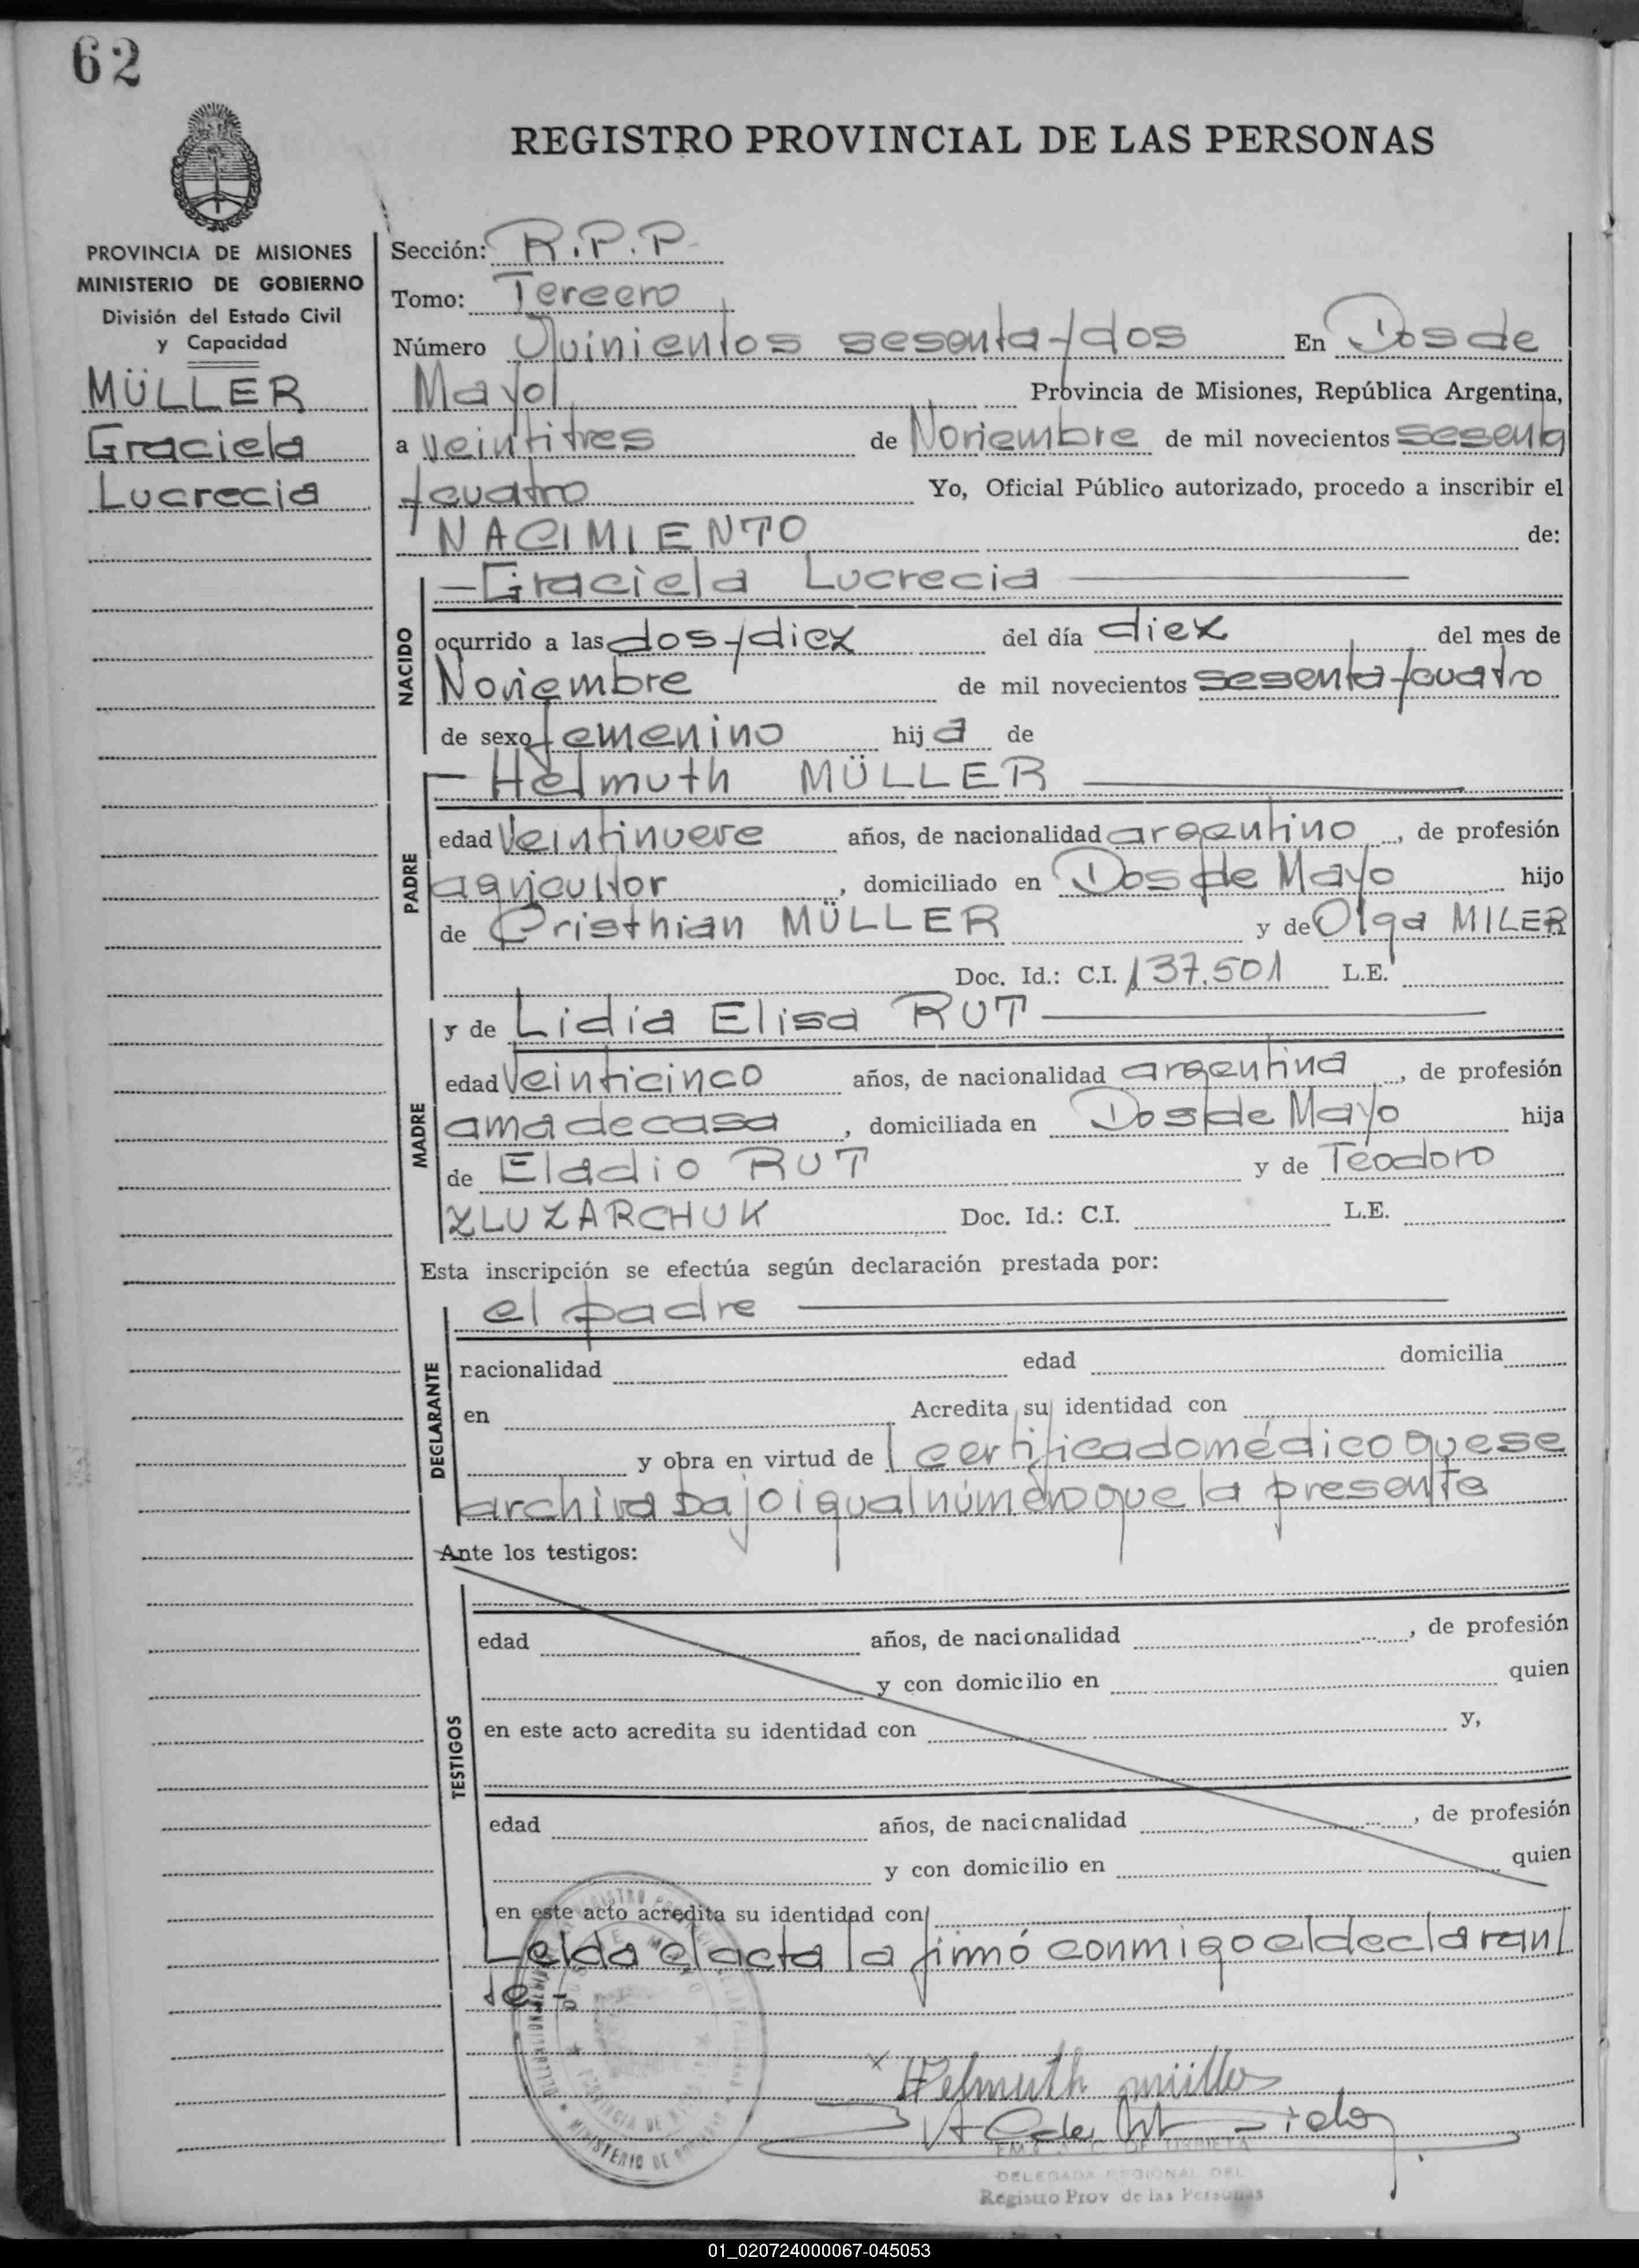 62
REGISTRO PROVINCIAL DE LAS PERSONAS
PROVINCIA DE MISIONES
MINISTERIO DE GOBIERNO
División del Estado Civil
y Capacidad
MÜLLER
Graciela
Lucrecia
Sección: R.P.P.
Tomo: Tercero
Número Quinientos sesenta y dos En Dos de
Mayo Provincia de Misiones, República Argentina,
a veintitres de Noviembre de mil novecientos sesenta
y cuatro Yo, Oficial Público autorizado, procedo a inscribir el
NACIMIENTO de:
NACIDO
— Graciela Lucrecia —
ocurrido a las dos y diez del día diez del mes de
Noviembre de mil novecientos sesenta y cuatro
de sexo femenino hija de
PADRE
— Helmuth MÜLLER —
edad Veintinueve años, de nacionalidad argentino, de profesión
agricultor, domiciliado en Dos de Mayo hijo
de Cristhian MÜLLER y de Olga MILER
Doc. Id.: C.I. 137.501 L.E.
MADRE
y de Lidia Elisa RUT —
edad Veinticinco años, de nacionalidad argentina, de profesión
ama de casa, domiciliada en Dos de Mayo hija
de Eladio RUT y de Teodoro
ZLUZARCHUK Doc. Id.: C.I. L.E.
Esta inscripción se efectúa según declaración prestada por:
DECLARANTE
el padre —
nacionalidad edad domicilia
en Acredita su identidad con
y obra en virtud de l certificado médico que se
archiva bajo igual número que la presente
Ante los testigos:
TESTIGOS
edad años, de nacionalidad , de profesión
y con domicilio en quien
en este acto acredita su identidad con y,
edad años, de nacionalidad , de profesión
y con domicilio en quien
en este acto acredita su identidad con
Leida el acta la firmó conmigo el declaran
te.-
x Helmuth Müller
DELEGADA REGIONAL DEL
Registro Prov de las Personas
01_020724000067-045053